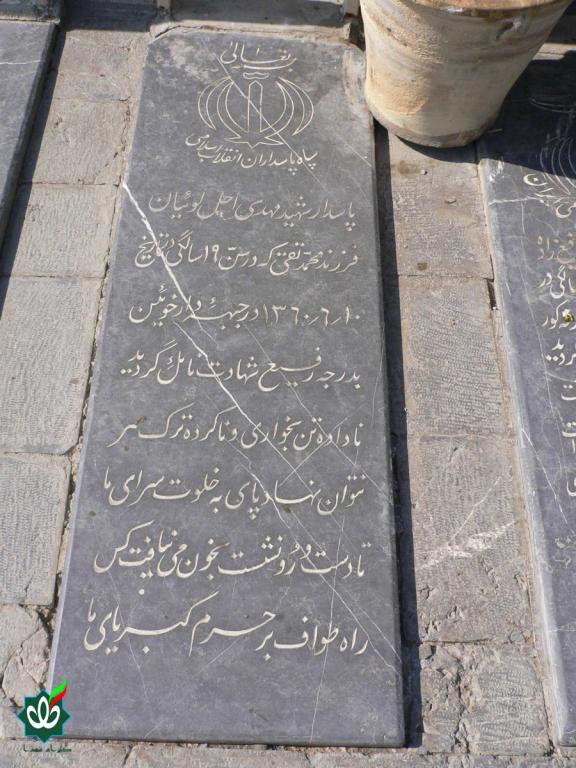 بتعالی
سپاه پاسداران انقلاب اسلامی
پاسدار شهید مهدی اجل لوئیان
فرزند محمد تقی که در سن ۱۹ سالگی در تاریخ
۱۳۶۰/۶/۱۰ در جبهه دارخوئین
بدرجه رفیع شهادت نائل گردید
ناداده تن بخواری و ناکرده ترک سر
نتوان نهاد پای به خلوت سرای ما
تا دست و رو نشست بخون می نیافت کس
راه طواف بر حرم کبریای ما